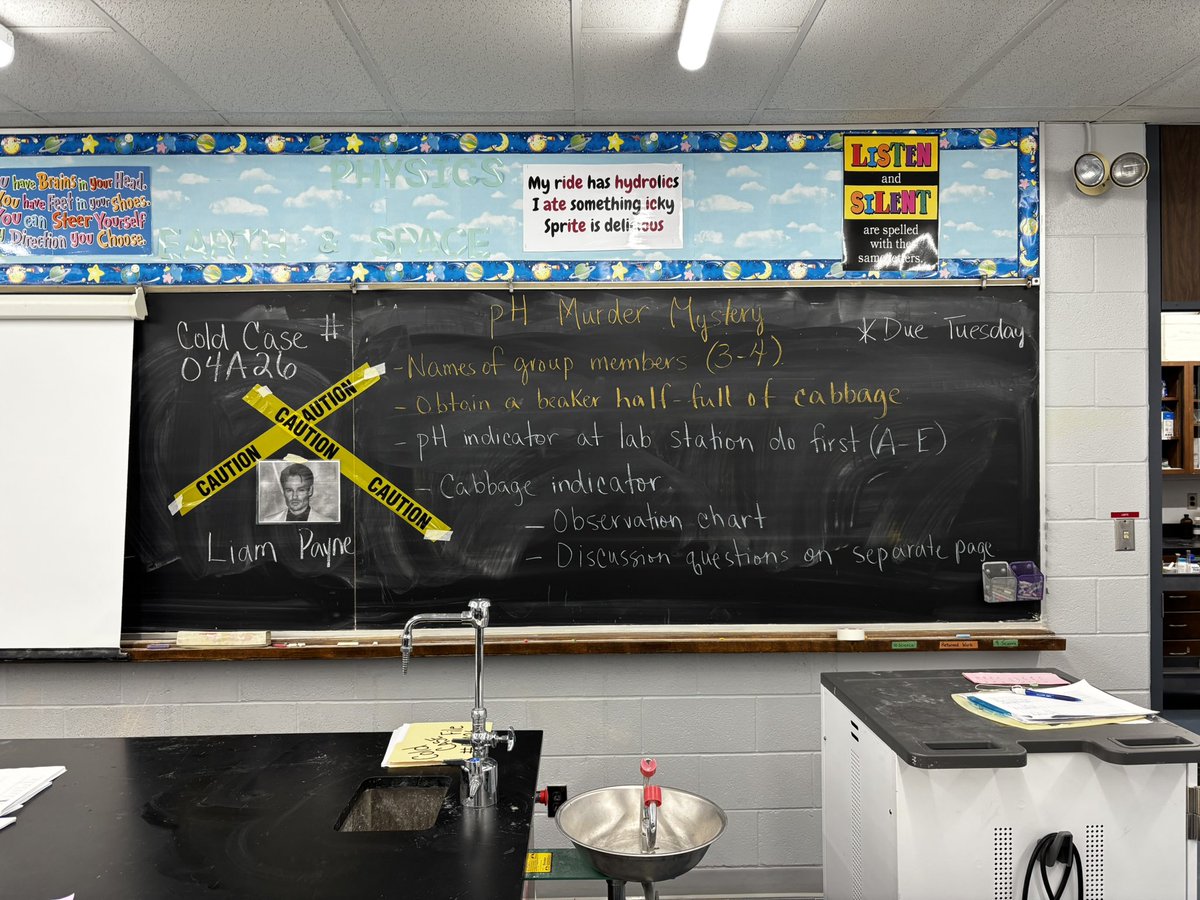 ou have Brains in your Head.
You have Feet in your Shoes.
You can Steer Yourself
Direction you Choose.
PHYSICS
EARTH & SPACE
My ride has hydrolics
I ate something icky
Sprite is delicious
LiSTEN
and
SiLENT
are spelled
with the
same letters.
Cold Case #
04A26
CAUTION
CAUTION
CAUTION
CAUTION
CAUTION
Liam Payne
pH Murder Mystery
* Due Tuesday
- Names of group members (3-4)
- Obtain a beaker half-full of cabbage
- pH indicator at lab station do first (A-E)
- Cabbage indicator
- Observation chart
- Discussion questions on separate page
Cold
Case File